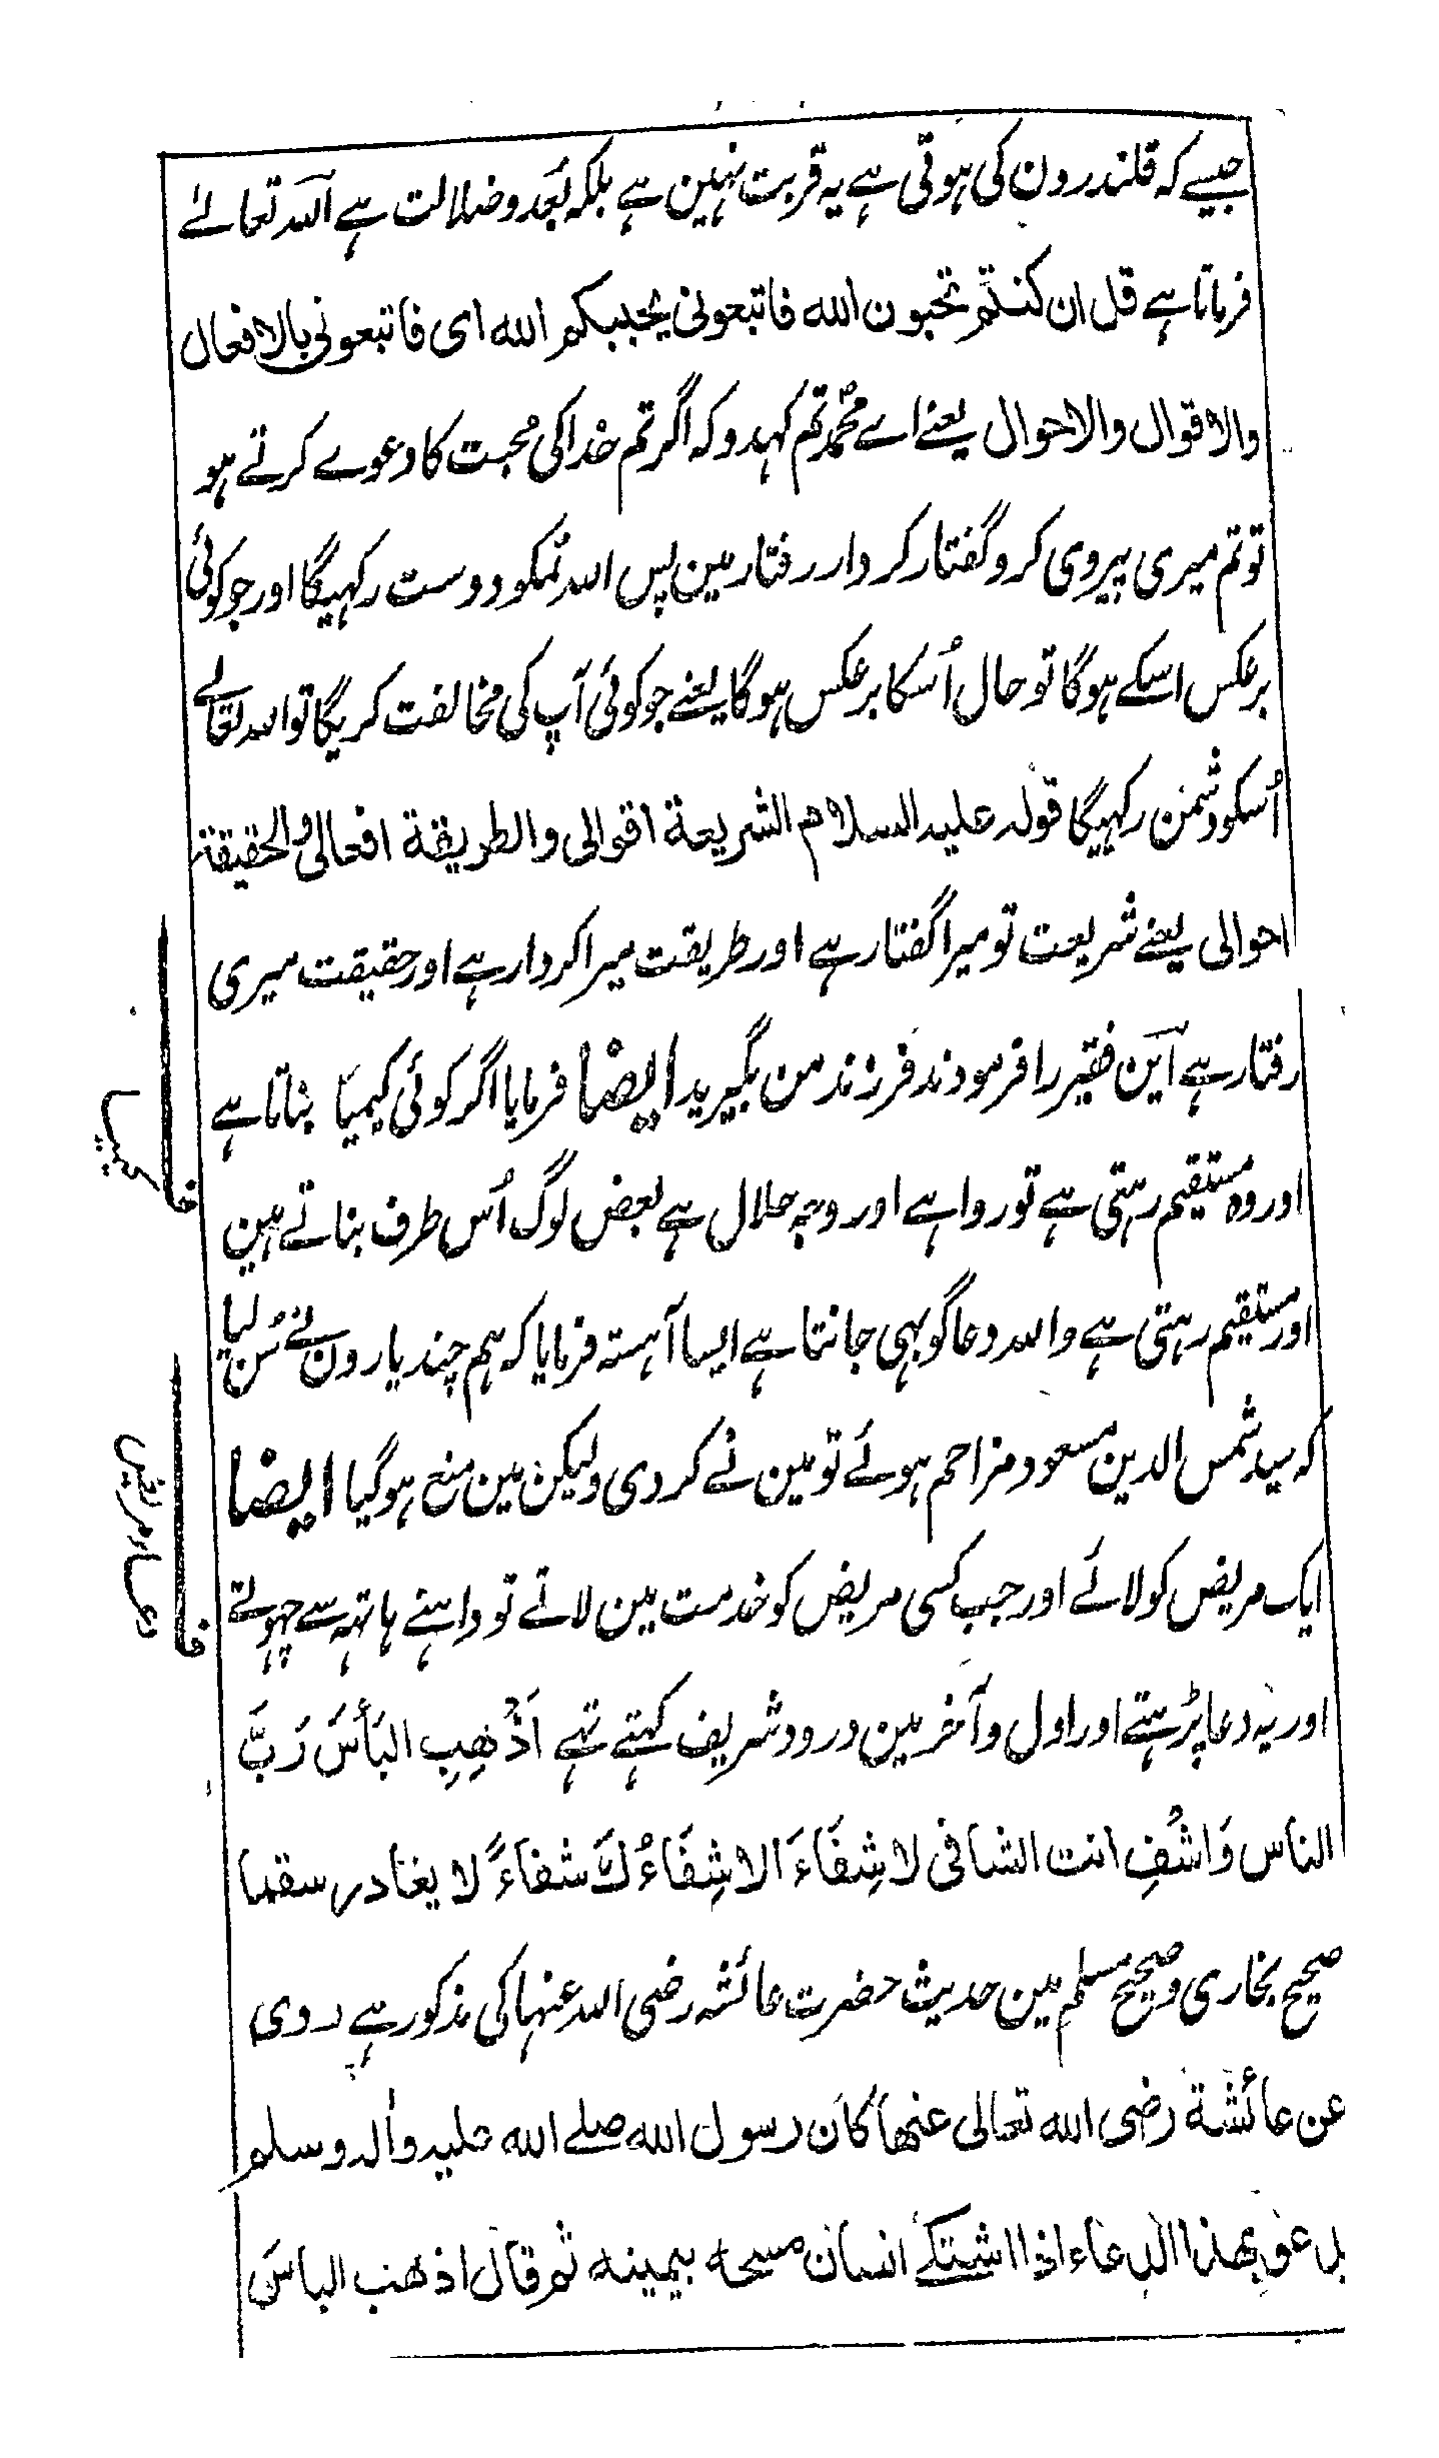 جیسے کہ قلندرون کی ہوتی ہے یہ قربت نہین ہے بلکہ بُعد وضلالت ہے اللہ تعالےٰ
فرماتا ہے قل ان کنتم تحبون اللہ فاتبعونی یحببکم اللہ ای فاتبعونی بالافعال
والاقوال والاحوال یعنے اے محمدؐ تم کہدو کہ اگر تم خدا کی محبت کا دعوے کرتے ہو
تو تم میری پیروی کرو گفتار کردار رفتار مین پس اللہ تمکو دوست رکہیگا اور جو کوئی
برعکس اسکے ہوگا تو حال اُسکا برعکس ہوگا یعنے جو کوئی آپ کی مخالفت کریگا تو اللہ تعالے
اُسکو دشمن رکہیگا قولہ علیہ السلام الشریعة اقوالی والطریقة افعالی والحقیقة
احوالی یعنے شریعت تو میرا گفتار ہے اور طریقت میرا کردار ہے اور حقیقت میری
رفتار ہے آین فقیر را فرمودند فرزند من بگیرید ایضا فرمایا اگر کوئی کیمیا بناتا ہے
اور وہ مستقیم رہتی ہے تو روا ہے اور وجہ حلال ہے بعض لوگ اُس طرف بناتے ہین
اور مستقیم رہتی ہے واللہ دعاگو بہی جانتا ہے ایسا آہستہ فرمایا کہ ہم چند یارون نے سُن لیا
کہ سید شمس الدین مسعود مزاحم ہوئے تو مین نے کر دی ولیکن مین منع ہوگیا ایضا
ایک مریض کو لائے اور جب کسی مریض کو خدمت مین لاتے تو داہنے ہاتہہ سے چہوتے
اور یہ دعا پڑہتے اور اول و آخر مین درود شریف کہتے تہے اَذْهِبِ البَأسَ رَبَّ
الناس وَاشْفِ انت الشافی لا شِفَاءَ الا شِفَاءُكَ شفاءً لا یغادر سقما
صحیح بخاری و صحیح مسلم مین حدیث حضرت عائشہ رضی اللہ عنہا کی مذکور ہے روی
عن عائشة رضی اللہ تعالی عنها کان رسول اللہ صلے اللہ علیہ واٰلہ وسلم
یدعو بهذا الدعاء اذا اشتکے انسان مسحه بیمینه ثم قال اذهب الباسَ
فـ کیمیا
فـ دعاء مریض